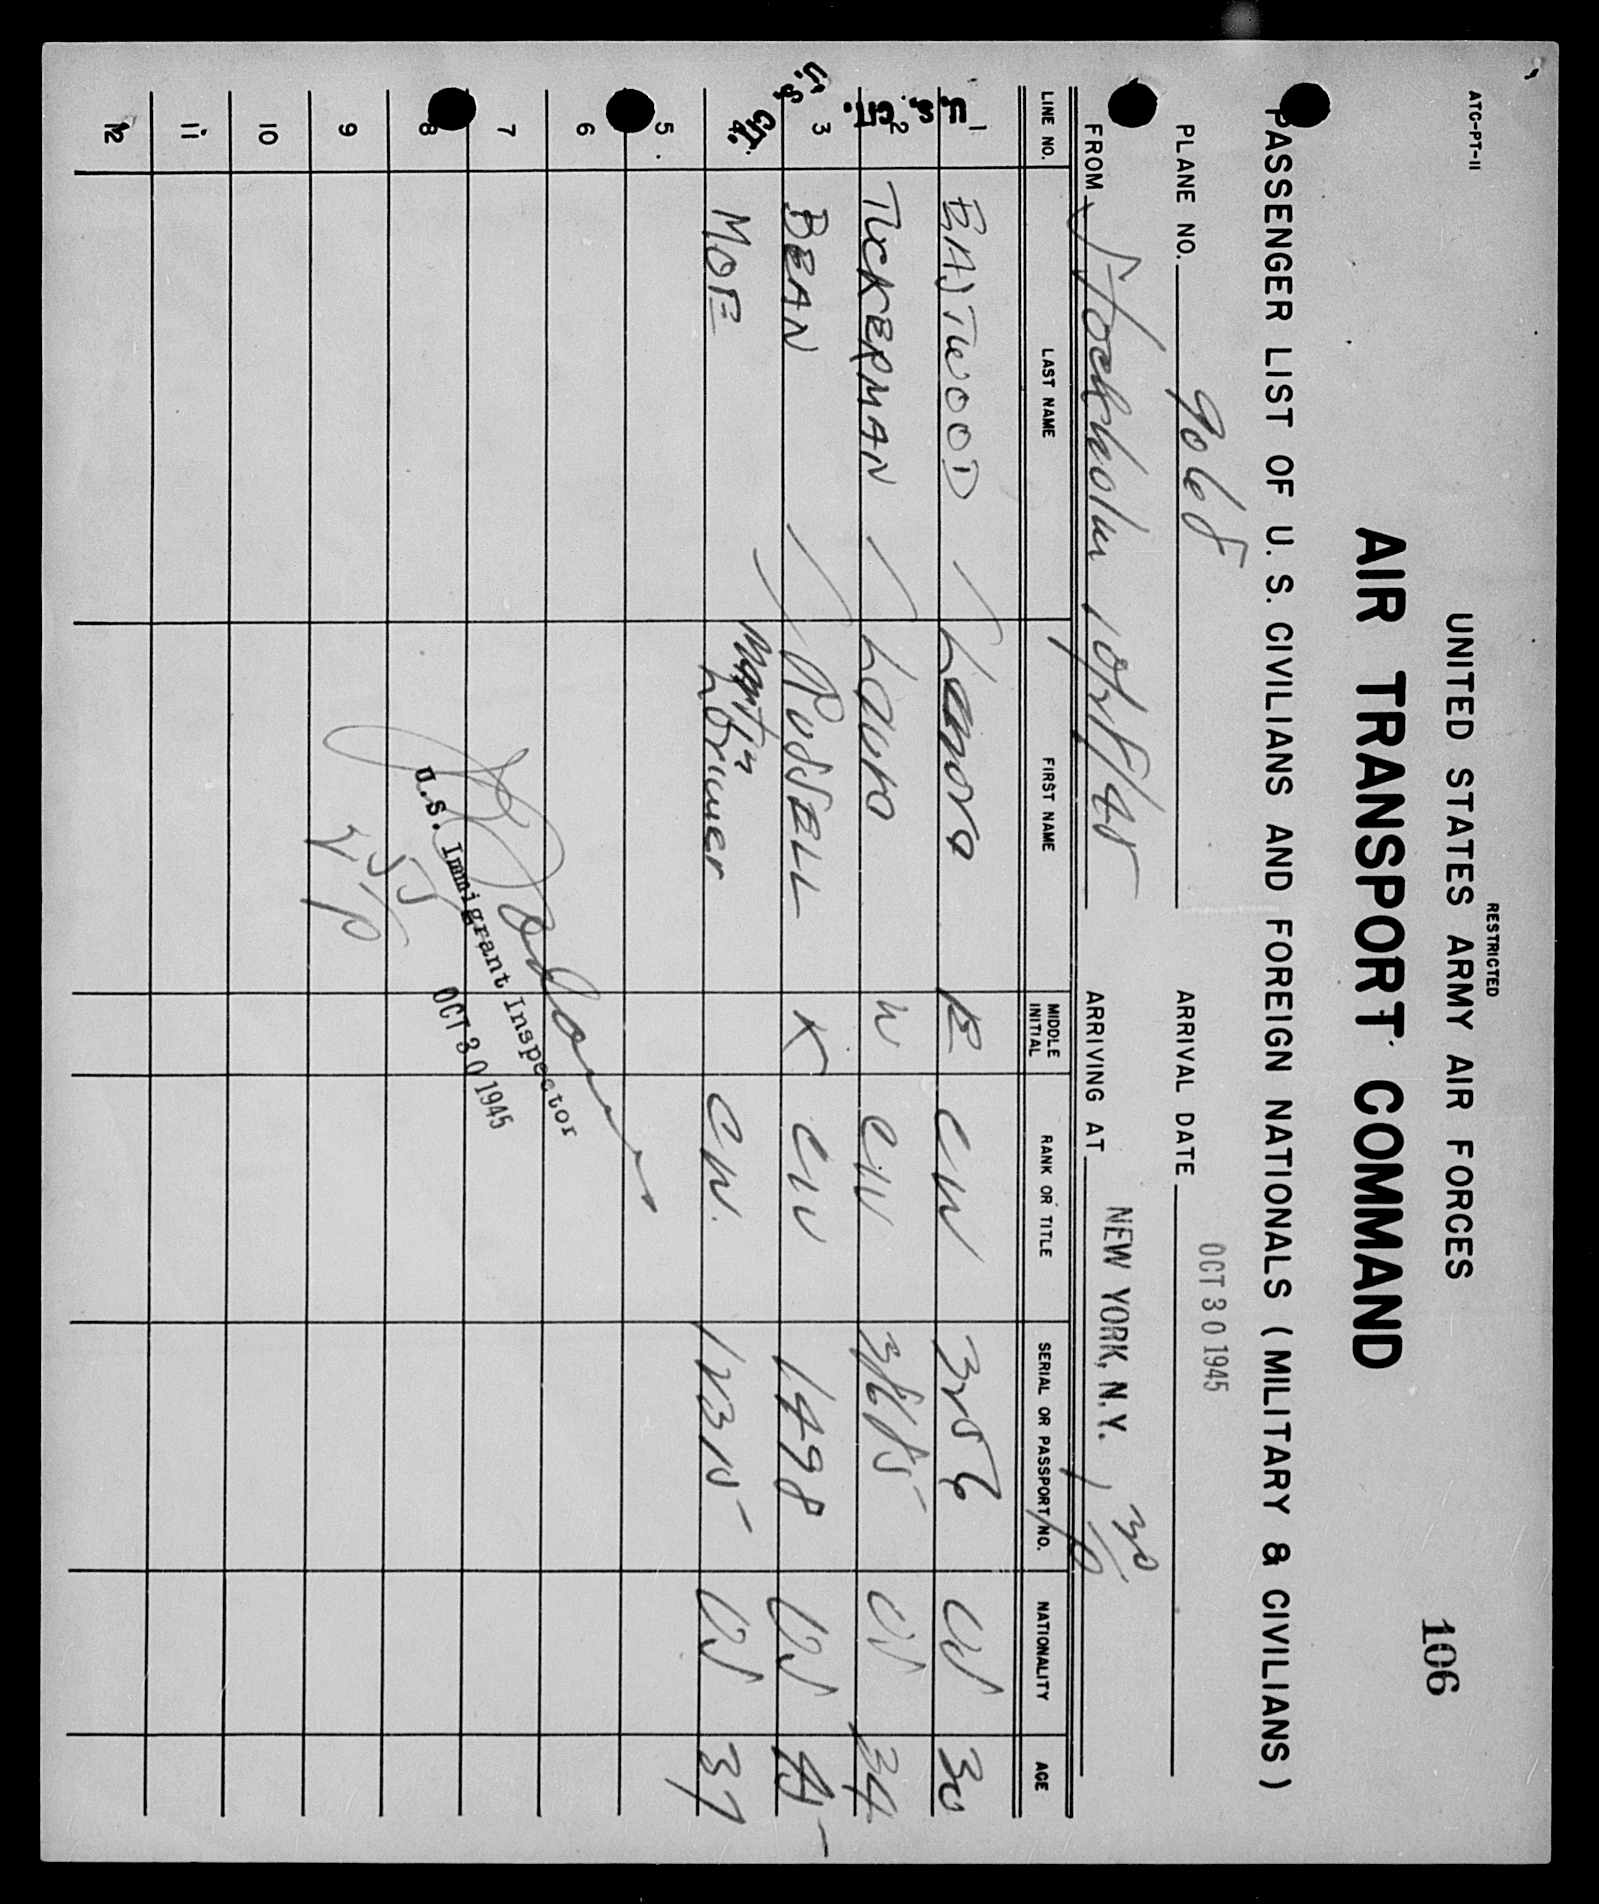 ATC-PT-11
RESTRICTED
UNITED STATES ARMY AIR FORCES
106
AIR TRANSPORT COMMAND
PASSENGER LIST OF U. S. CIVILIANS AND FOREIGN NATIONALS (MILITARY & CIVILIANS)
PLANE NO. 9068 ARRIVAL DATE OCT 30 1945
FROM Stockholm 10/28/45 ARRIVING AT NEW YORK, N.Y.
LINE NO. LAST NAME FIRST NAME MIDDLE INITIAL RANK OR TITLE SERIAL OR PASSPORT NO. NATIONALITY AGE
1 EASTWOOD Lenora E CIV 3256 US 30
2 TUCKERMAN Laura W CIV US 34
3 BEAN RUSSELL K CIV 1498 US 45
MOE Martin Lorimer CIV. 12315 US 37
U.S. CIT.
U.S. CIT.
5
6
7
8
9
10
11
12
U.S. Immigrant Inspector
OCT 30 1945